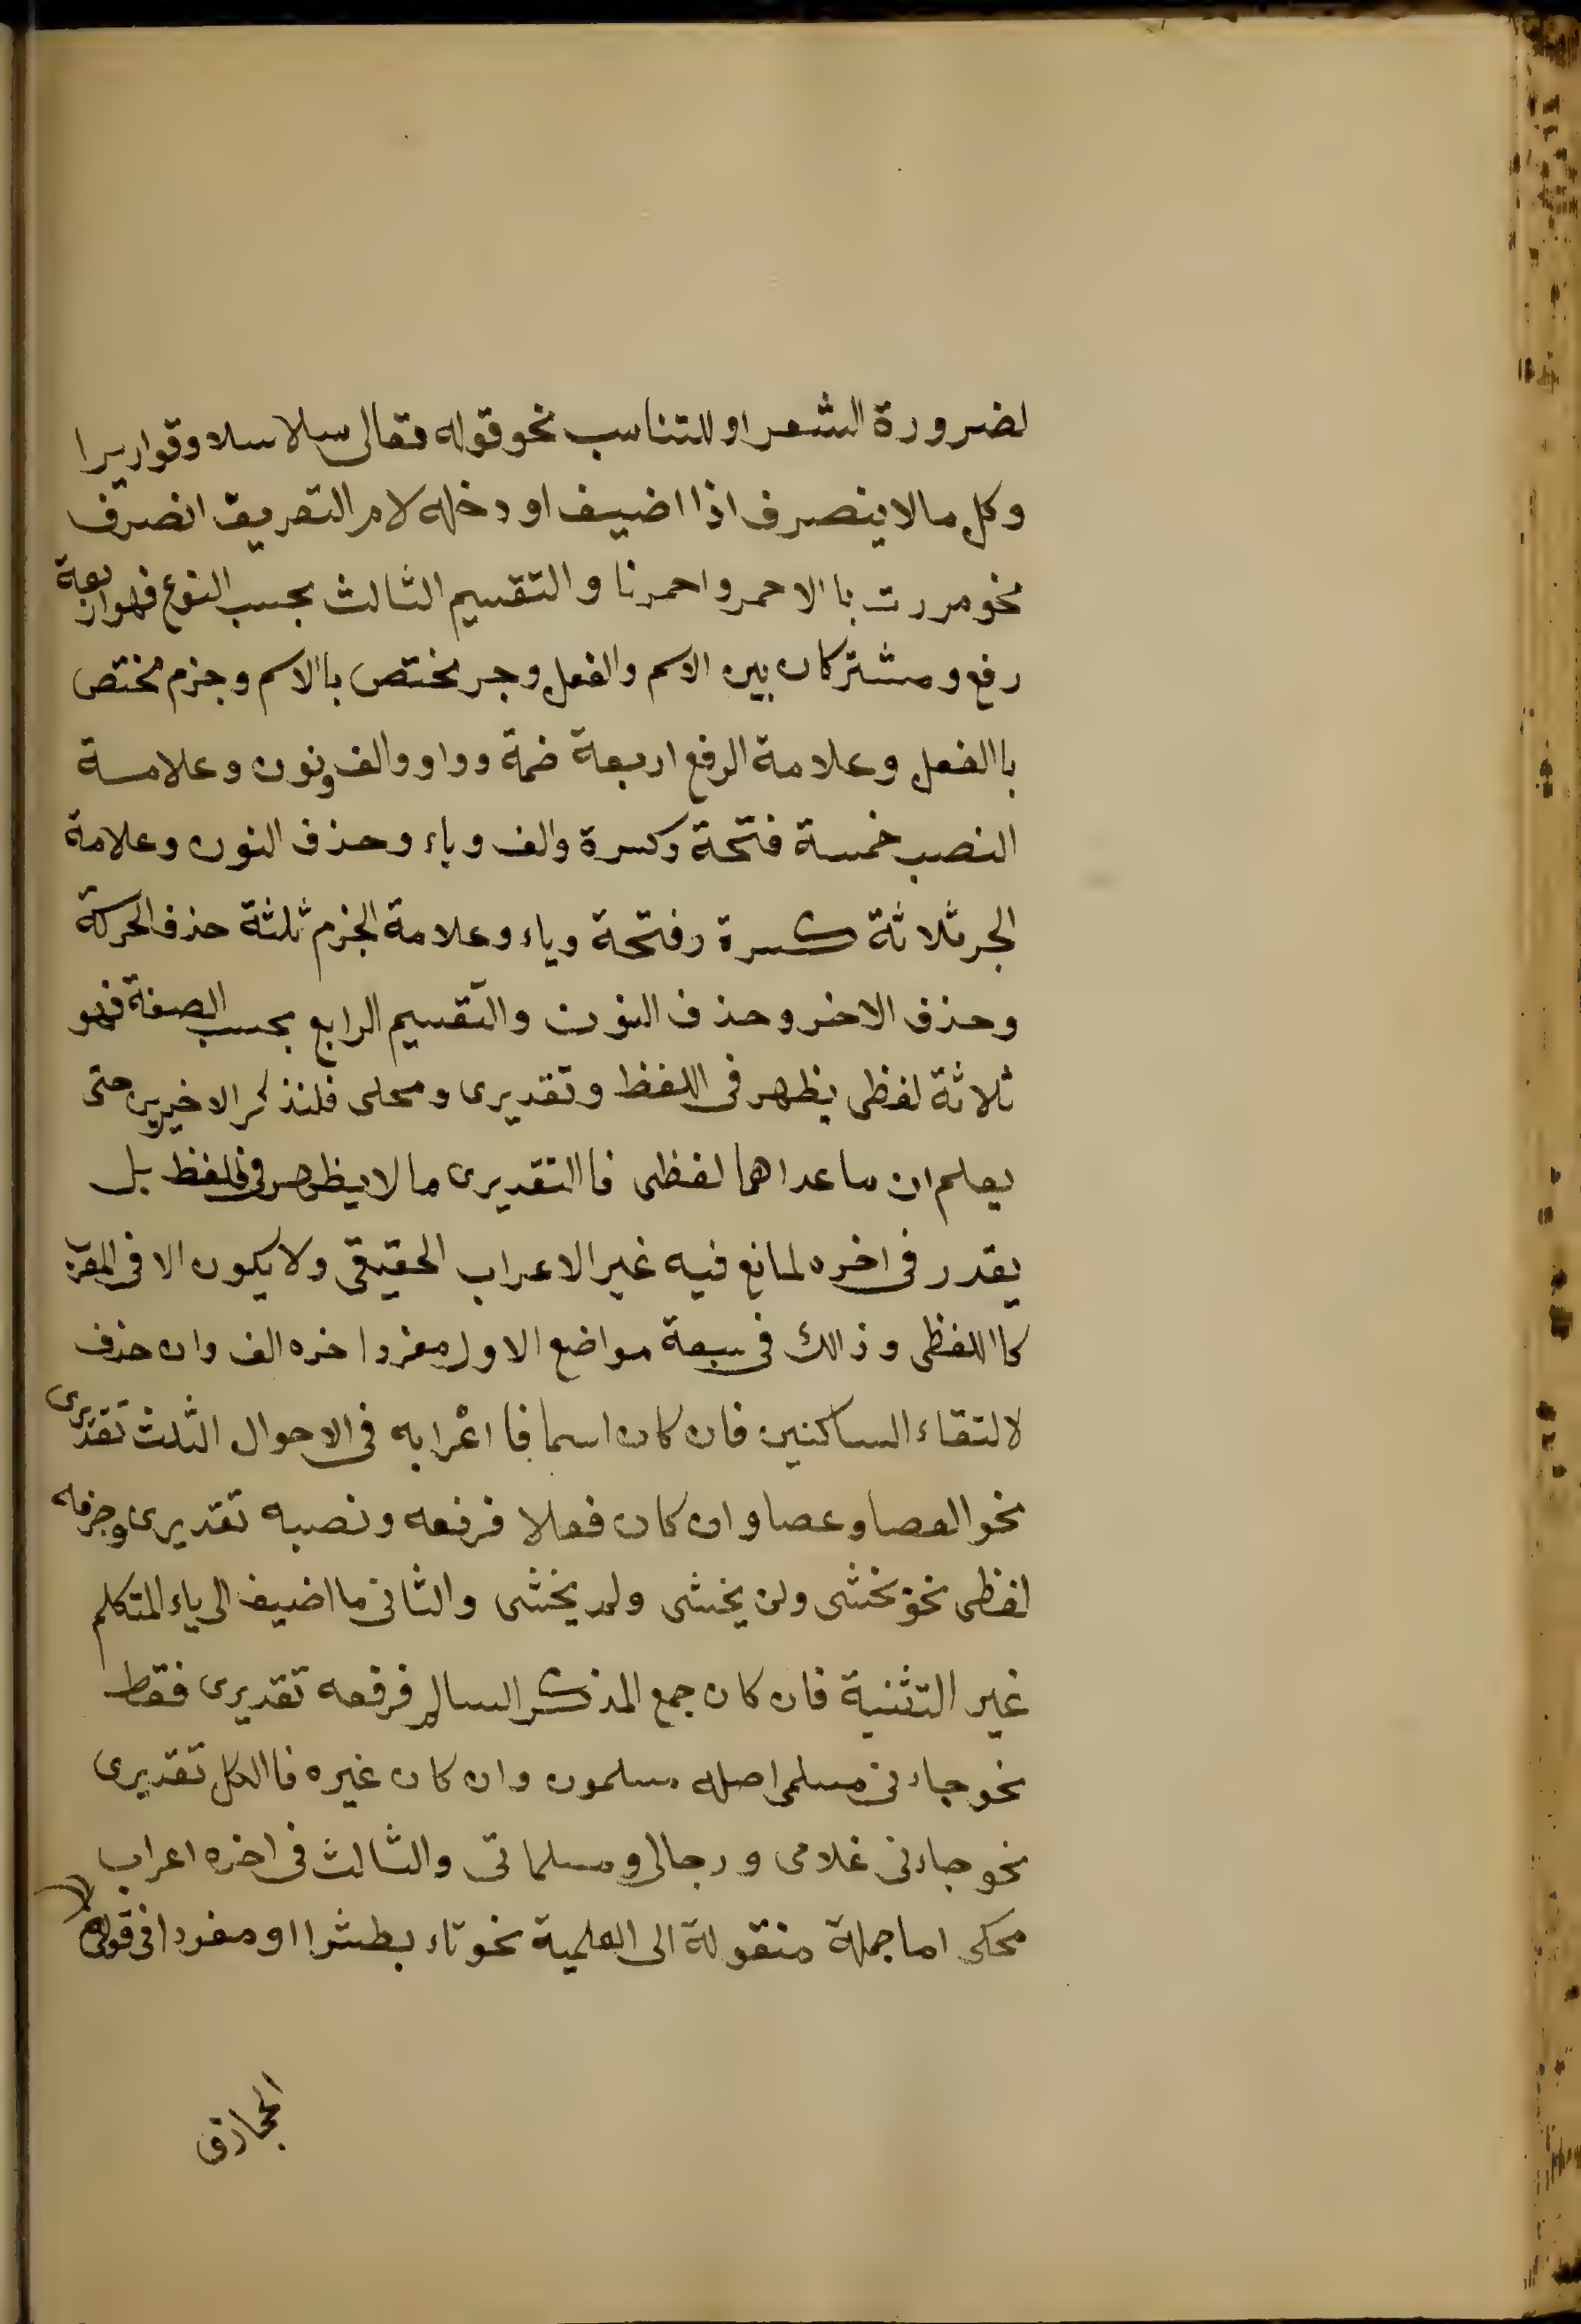 لضرورة الشعر او للتناسب نحو قوله تعالى سلاسلا وقواريرا
وكل ما لا ينصرف اذا اضيف او دخله لام التعريف انصرف
نحو مررت با الاحمر واحمرنا والتقسيم الثالث بحسب النوع فهو اربعة
رفع و مشتركان بين الاسم والفعل وجر مختص با الاسم وجزم مختص
با الفعل وعلامة الرفع اربعة ضمة وواو والف ونون وعلامة
النصب خمسة فتحة وكسرة والف وياء وحذف النون وعلامة
الجر ثلاثة كسرة وفتحة وياء وعلامة الجزم ثلثة حذف الحركة
وحذف الاخر وحذف النون والتقسيم الرابع بحسب الصفة فهو
ثلاثة لفظى يظهر فى اللفظ وتقديرى ومحلى فلنذكر الاخيرين حتى
يعلم ان ما عداهما لفظى فا التقديرى ما لا يظهر فى اللفظ بل
يقدر فى اخره لمانع فيه غير الاعراب الحقيقى ولا يكون الا فى المعرب
كا اللفظى وذالك فى سبعة مواضع الاول مفرد اخره الف وان حذف
لالتقاء الساكنين فان كان اسما فا اعرابه فى الاحوال الثلث تقديرى
نحو العصا وعصا وان كان فعلا فرفعه ونصبه تقديرى وجزمه
لفظى نحو يخشى ولن يخشى ولم يخشى والثانى ما اضيف الى ياء المتكلم
غير التثنية فان كان جمع المذكر السالم فرفعه تقديرى فقط
نحو جاءنى مسلمى اصله مسلمون وان كان غيره فا الكل تقديرى
نحو جاءنى غلامى ورجالى ومسلماتى والثالث فى اخره اعراب
محكى اما جملة منقولة الى العلمية نحو تاء بطشرا او مفردا فى قول